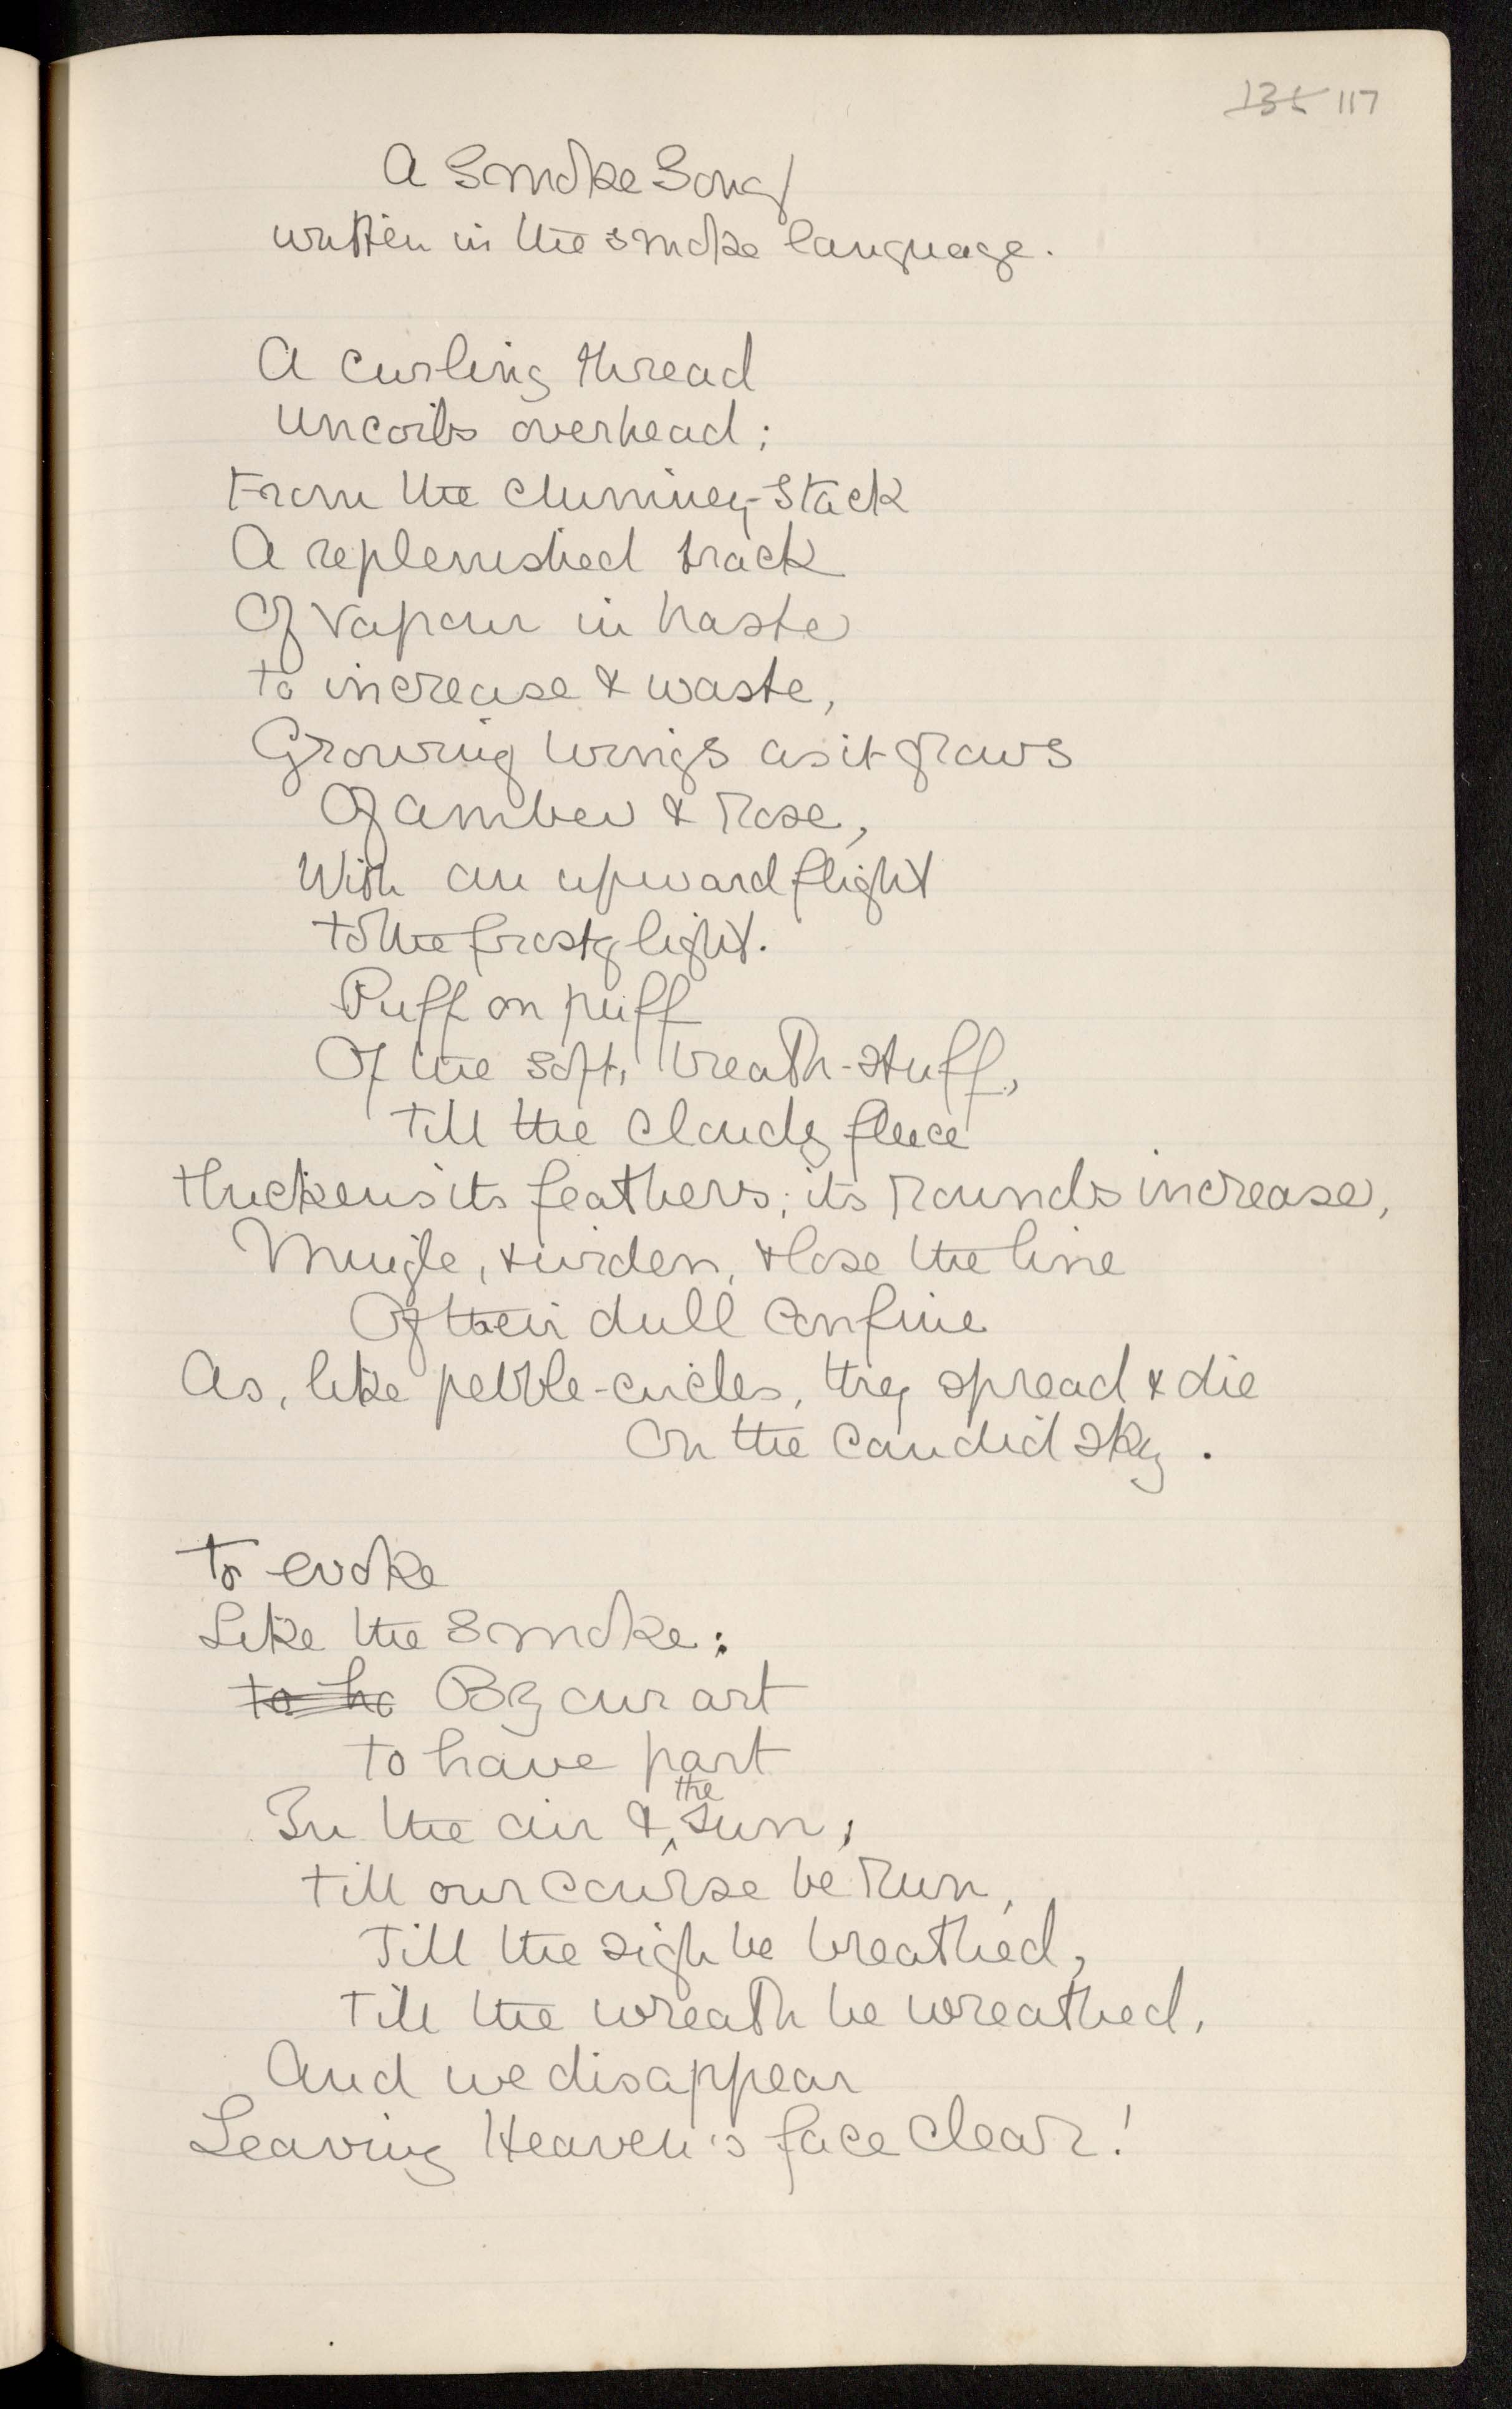 135 117
A Smoke Song
written in the smoke language.
A curling thread
Uncoils overhead;
From the chimney-stack
A replenished track
Of vapour in haste
To increase & waste,
Growing wings as it grows
Of amber & rose,
With an upward flight
To the frosty light.
Puff on puff
Of the soft, breath-stuff,
Till the cloudy fleece
Thickens its feathers; its rounds increase,
Mingle, & widen, & lose the line
Of their dull confine
As, like pebble-circles, they spread & die
On the candid sky.
To evoke
Like the smoke:
to ha By our art
To have part
In the air & the sun,
Till our course be run,
Till the sigh be breathed,
Till the wreath be wreathed,
And we disappear
Leaving Heaven's face clear!